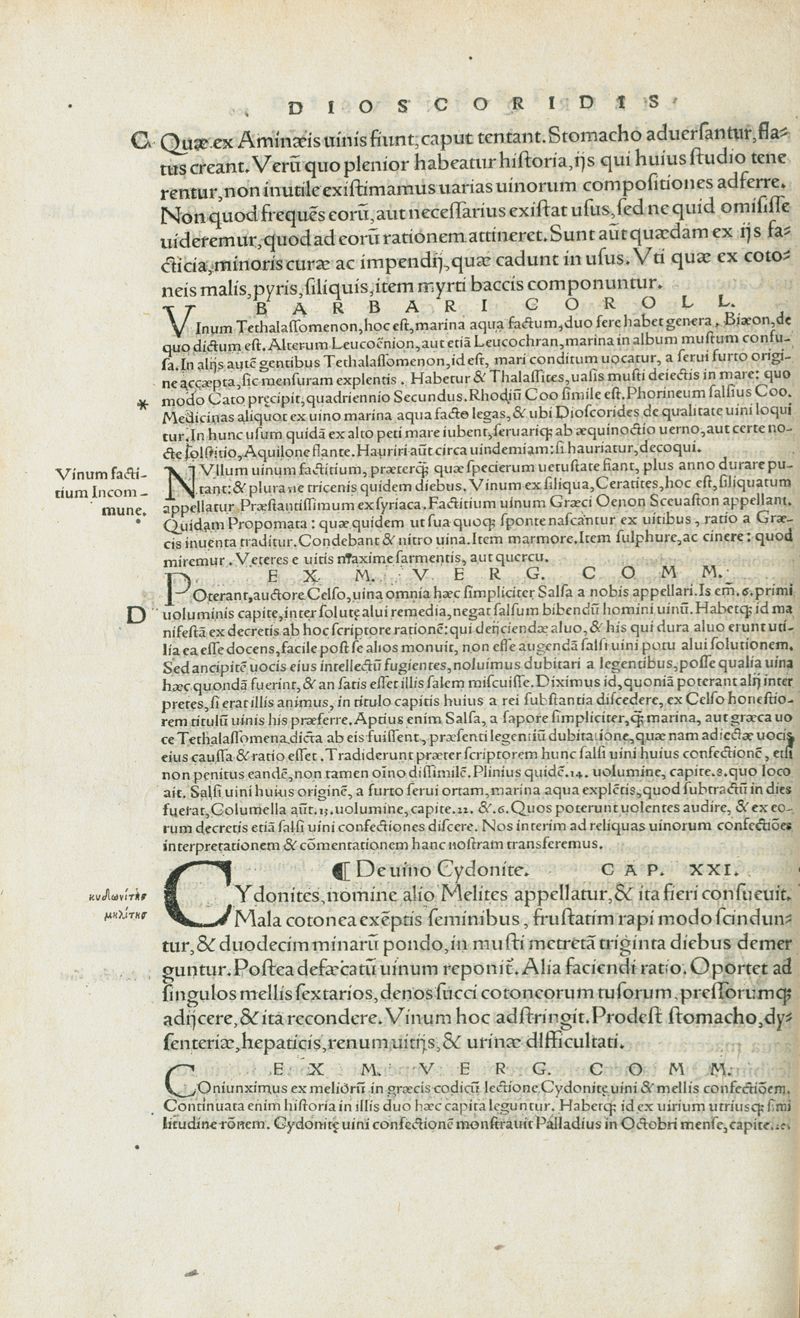 DIOSCORIDIS
C Quæ ex Aminæis uinis fiunt, caput tentant. Stomacho aduersantur, fla-
tus creant. Verũ quo plenior habeatur historia, ijs qui huius studio tene
rentur, non inutile existimamus uarias uinorum compositiones adferre.
Non quod frequẽs eorũ, aut necessarius existat usus, sed ne quid omisisse
uideremur, quod ad eorũ rationem attineret. Sunt aũt quædam ex ijs fa-
cticia, minoris curæ ac impendij, quæ cadunt in usus. Vti quæ ex coto-
neis malis, pyris, siliquis, item myrti baccis componuntur.
BARBARI COROLL.
VInum Tethalassomenon, hoc est, marina aqua factum, duo fere habet genera. Biæon, de
quo dictum est. Alterum Leucoẽnion, aut etiã Leucochran, marina in album mustum confu-
sa. In alijs autẽ gentibus Tethalassomenon, id est, mari conditum uocatur, a serui furto origi-
ne accæpta, sic mensuram explentis. Habetur & Thalassites, uasis musti deiectis in mare: quo
* modo Cato pręcipit, quadriennio Secundus. Rhodiũ Coo simile est. Phorineum salsius Coo.
Medicinas aliquot ex uino marina aqua facto legas, & ubi Dioscorides de qualitate uini loqui
tur. In hunc usum quidã ex alto peti mare iubent, seruariq; ab æquinoctio uerno, aut certe no-
cte solstitio, Aquilone flante. Hauriri aũt circa uindemiam: si hauriatur, decoqui.
Vinum facti-
tium Incom-
mune.
NVllum uinum factitium, præterq̃; quæ specierum uetustate fiant, plus anno durare pu-
tant: & plura ne tricenis quidem diebus. Vinum ex siliqua, Ceratites, hoc est, siliquatum
appellatur Præstantissimum ex syriaca. Factitium uinum Græci Oenon Sceuaston appellant.
Quidam Propomata: quæ quidem ut sua quoq; sponte nascantur ex uitibus, ratio a Græ-
cis inuenta traditur. Condebant & nitro uina. Item marmore. Item sulphure, ac cinere: quod
miremur. Veteres e uitis maxime sarmentis, aut quercu.
EX M. VERG. COMM.
POterant, auctore Celso, uina omnia hæc simpliciter Salsa a nobis appellari. Is em̃. 6. primi
D uoluminis capite, inter solutę alui remedia, negat salsum bibendũ homini uinũ. Habetq; id ma
nifestã ex decretis ab hoc scriptore rationẽ: qui deijciendæ aluo, & his qui dura aluo erunt uti-
lia ea esse docens, facile post se alios monuit, non esse augendã salsi uini potu alui solutionem.
Sed ancipitẽ uocis eius intellectũ fugientes, noluimus dubitari a legentibus, posse qualia uina
hæc quondã fuerint, & an satis esset illis salem miscuisse. Diximus id, quoniã poterant alij inter
pretes, si erat illis animus, in titulo capitis huius a rei substantia discedere, ex Celso honestio-
rem titulũ uinis his præferre. Aptius enim Salsa, a sapore simpliciter, q̃; marina, aut græca uo
ce Tethalassomena dicta ab eis fuissent, præsenti legentiũ dubitatione, quæ nam adiectæ uocis
eius caussa & ratio esset. Tradiderunt præter scriptorem hunc salsi uini huius confectionẽ, etsi
non penitus eandẽ, non tamen oĩno dissimilẽ. Plinius quidẽ. 14. uolumine, capite. 8. quo loco
ait. Salsi uini huius originẽ, a furto serui ortam, marina aqua explẽtis, quod subtractũ in dies
fuerat, Columella aũt. 13. uolumine, capite. 22. &. 6. Quos poterunt uolentes audire, & ex eo-
rum decretis etiã salsi uini confectiones discere. Nos interim ad reliquas uinorum confectiões
interpretationem & cõmentationem hanc nostram transferemus.
¶ De uino Cydonite. CAP. XXI.
κυδωνίτης
μηλίτης
CYdonites, nomine alio Melites appellatur, & ita fieri consueuit.
Mala cotonea exẽptis seminibus, frustatim rapi modo scindun-
tur, & duodecim minarũ pondo, in musti metretã triginta diebus demer
guntur. Postea defæcatũ uinum reponit̃. Alia faciendi ratio. Oportet ad
singulos mellis sextarios, denos succi cotoneorum tusorum, pressorumq;
adijcere, & ita recondere. Vinum hoc adstringit. Prodest stomacho, dy-
senteriæ, hepaticis, renum uitijs, & urinæ difficultati.
EX M. VERG. COMM.
COniunximus ex meliorũ in græcis codicũ lectione Cydonitę uini & mellis confectiõem.
Continuata enim historia in illis duo hæc capita leguntur. Habetq; id ex uirium utriusq; simi
litudine rõnem. Cydonitę uini confectionẽ monstrauit Palladius in Octobri mense, capite.